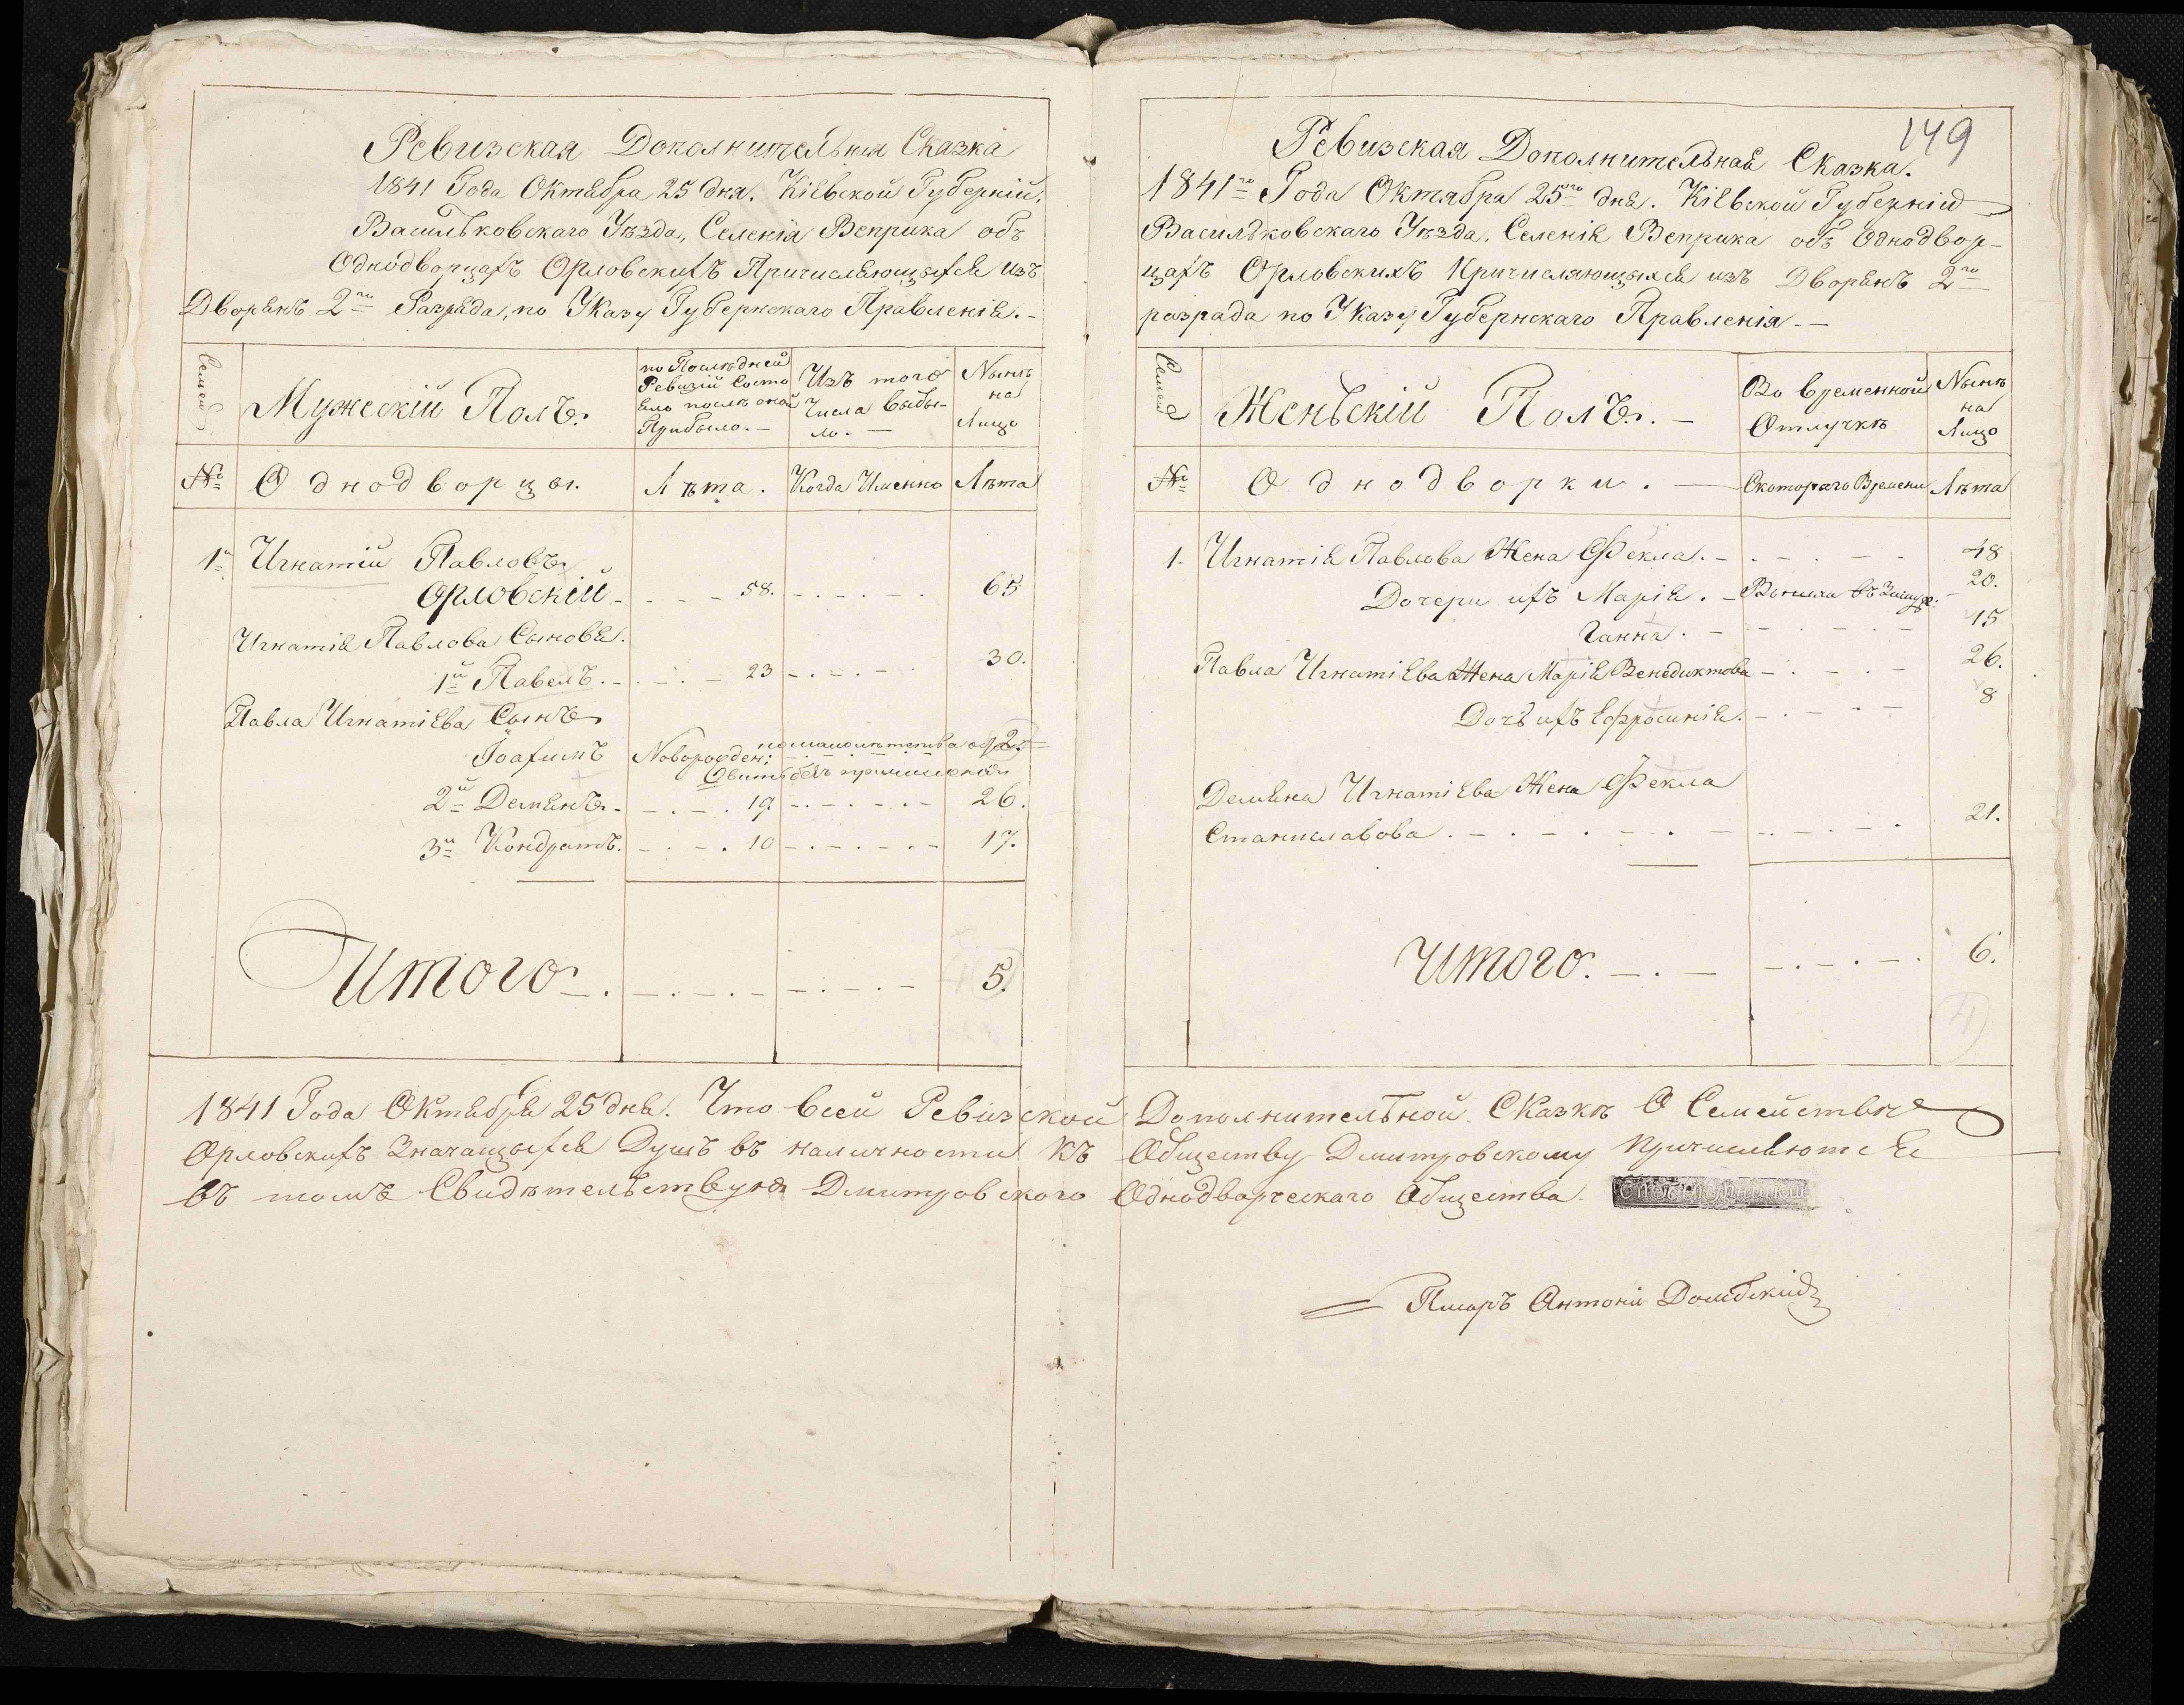 Ревизская Дополнительная Сказка
1841 Года Октября 25 дня. Кіевской Губерніи,
Васильковскаго Уѣзда, Селенія Веприка объ
Однодворцахъ Орловскихъ Причисляющыхся изъ
Дворянъ 2го Разряда, по Указу Губернскаго Правленія.-
Семей
Мужескій Полъ.
по Послѣдней Ревизіи Состояло послѣ оной Прибыло.-
Изъ того Числа выбыло.-
Нынѣ на Лицо
№
Однодворцы.
Лѣта.
Когда Именно
Лѣта
1й Игнатій Павловъ
Орловскій - 58. 65
Игнатія Павлова Сыновья.
1й Павелъ. - 23 - 30.
Павла Игнатіева Сынъ
Іоахимъ Новорожден: 2.
2й Демянъ - 19. 26.
3й Кондратъ. 10 17.
Итого 5.
149
Ревизская Дополнительная Сказка.
1841го Года Октября 25го дня. Кіевской Губерніи
Васильковскаго Уѣзда. Селенія Веприка объ Однодвор-
цахъ Орловскихъ Причисляющыхся изъ Дворянъ 2го
разряда по Указу Губернскаго Правленія.-
Семей
Женьскій Полъ.-
Во временной Отлучкѣ
Нынѣ на Лицо
№
Однодворки.
Скотораго Времени
Лѣта
1. Игнатія Павлова Жена Фекла.- 48
Дочери ихъ Марія. - въ Замуже: 20.
Ганна.- 15
Павла Игнатіева Жена Марія Венедиктова - 26.
Дочь ихъ Ефросинія.- 8
Демяна Игнатіева Жена Фекла
Станиславова. 21.
Итого. 6.
4
1841 Года Октября 25 дня. Что всей Ревизской Дополнительной Сказкѣ О Семействѣ
Орловскихъ Значащыхся Душъ въ наличности къ Обществу Дмитровскому причисляются
въ томъ Свидѣтельствую Дмитровского Однодворческаго Общества.
Писаръ Антони Домбскій